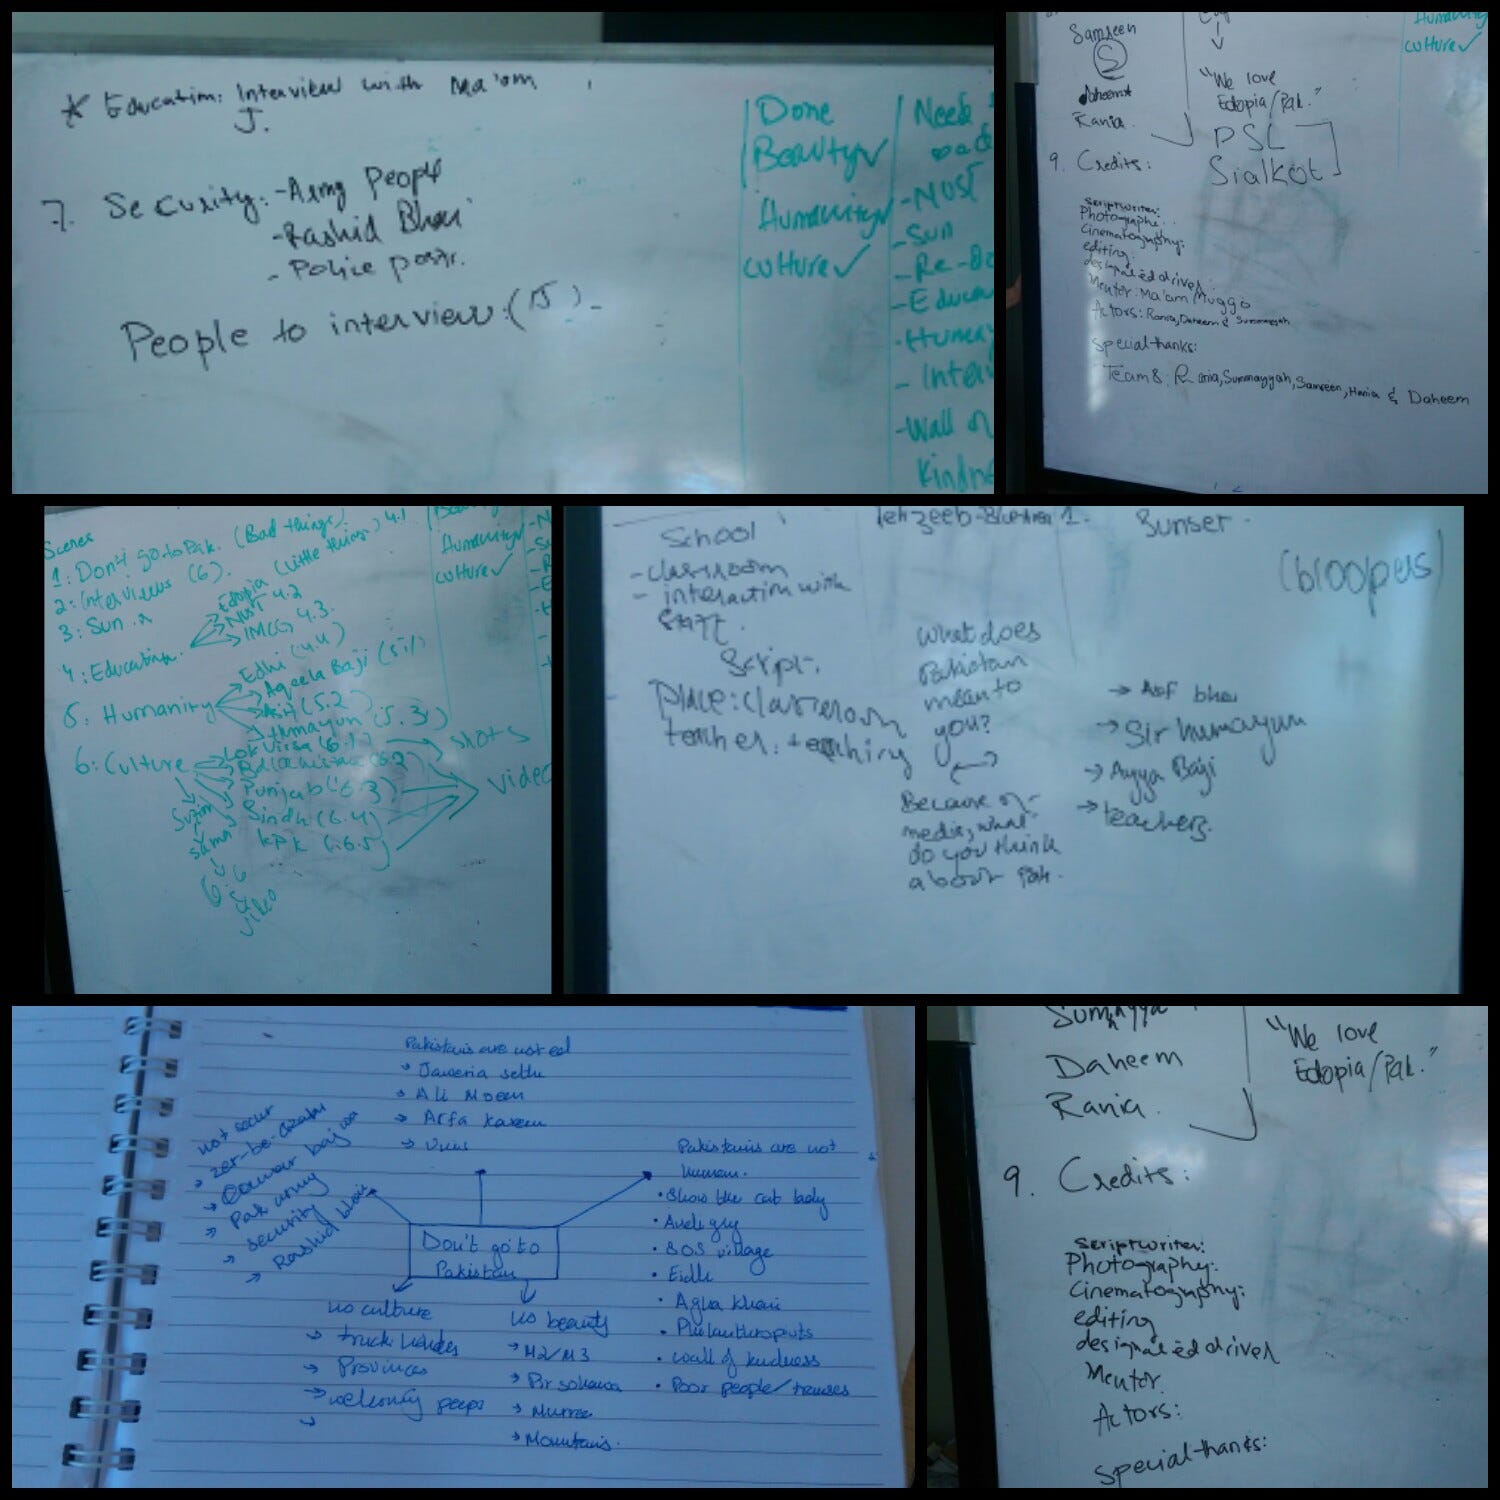 * Education: Interview with Ma'am
J.
7. Security: - Army People
- Rashid Bhai
- Police
People to interview: (15) -
Done
Beauty ✓
Humanity ✓
culture ✓
Need
- Sun
- Wall of
Samreen
S
Daheem
Rania
"We love
Edopia/Pak."
PSL
Sialkot
9. Credits:
Scriptwriter:
Photography:
Cinematography:
editing
designated driver:
Mentor: Ma'am Muggo
Actors: Rania, Daheem & Summayyah
Special thanks:
Team 8: Rania, Summayyah, Samreen, Hania & Daheem
Humanity
culture ✓
Scenes
1: Don't go to Pak. (Bad things)
2: Interviews (6).
(Little things) 4.1
3: Sun
Edopia
NUST 4.2
IMCG 4.3
4: Education
Edhi (4.4)
Aqeela Baji (5.1)
5. Humanity
(5.2)
Humayun (5.3)
6: Culture
Lok Virsa (6.1)
Balochistan (6.2)
Punjab (6.3)
Sindh (6.4)
kpk (6.5)
shots
video
video
Humanity ✓
culture ✓
School
- classroom
- interaction with
staff.
Script.
Place: classroom
teacher: teaching
Tehzeeb - Blue Area 1.
what does
Pakistan
mean to
you?
Because of
media, what
do you think
about Pak.
Sunset
(bloopers)
→ Asf bhai
→ Sir humayun
→ Ayya Baji
→ teachers
Pakistanis are not ed
→ Javeria
→ Ali Moeen
→ Arfa Kareem
→
not secur
→ zer-be-
→ Qamar bajwa
→ Pak army
→ security
→ Rashid bhai
Don't go to
Pakistan
Pakistanis are not
human.
• Show the cat lady
• guy
• SOS village
• Eidhi
• Agha khan
• Philanthropists
• wall of kindness
• Poor people/houses
no culture
→ truck
→ Provinces
→ welcoming peeps
→
no beauty
→ M2/M3
→ Pir sohawa
→ Murree
→ Mountains.
Summayya
Daheem
Rania
"We love
Edopia/Pak."
9. Credits:
Scriptwriter:
Photography:
Cinematography:
editing
designated driver
Mentor
Actors:
Special thanks: